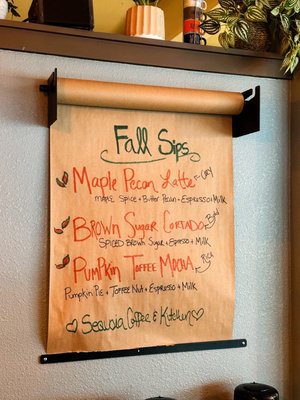 Fall Sips
Maple Pecan Latte
Maple Spice + Butter Pecan + Espresso + Milk
Brown Sugar Cortado
Spiced Brown Sugar + Espresso + Milk
Pumpkin Toffee Mocha
Pumpkin Pie + Toffee Nut + Espresso + Milk
Sequoia Coffee & Kitchen